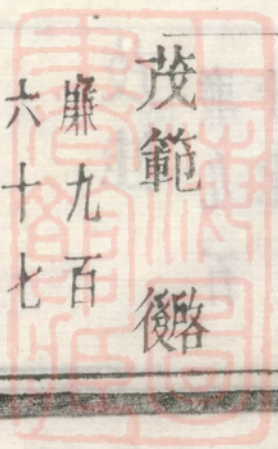 茂範
廉九百
六十七